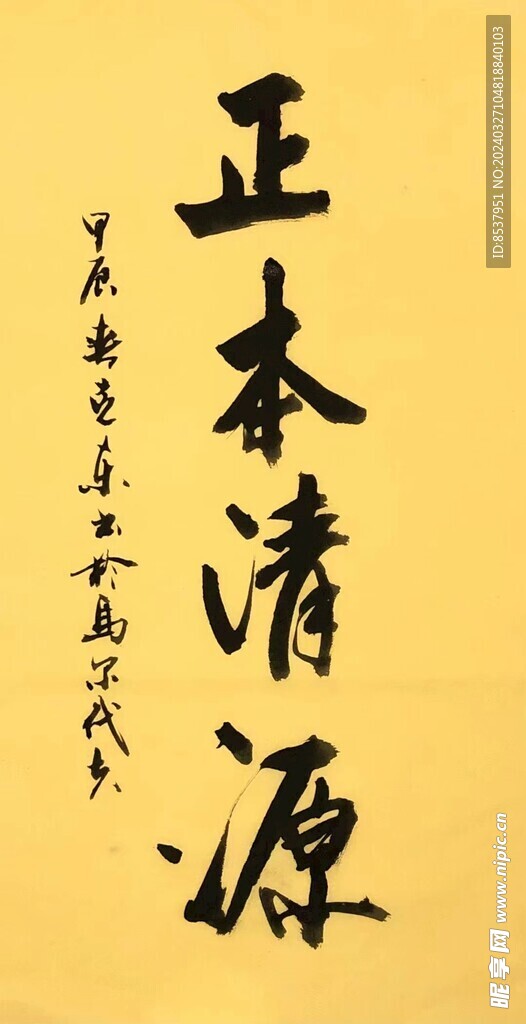 正本清源
甲辰春克东书於马尔代夫
ID:8537951 NO:20240327104818840103
昵享网 www.nipic.cn